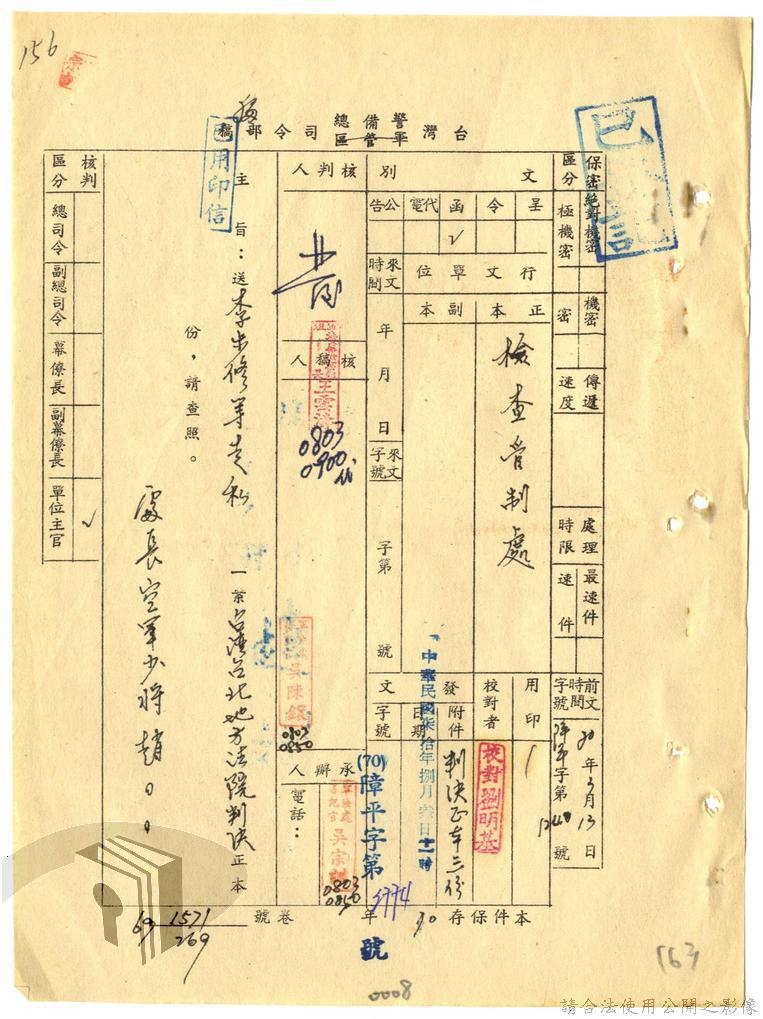 156
台灣警備總司令部稿
軍管區
已用印信
保密區分
絕對機密
極機密
機密
密
傳遞速度
處理時限
最速件
速件
前文時間字號
70年3月13日
障平字第1248號
文別
呈
令
函
代電
公告
√
行文單位
正本
副本
檢查管制處
來文時間
年 月 日
來文字號
字第 號
用印
校對者
校對劉明基
發文
附件
日期
字號
判決正本三份
中華民國柒拾年捌月叁日十一時
(70)障平字第3774號
核判人
核稿人
0803
0900
承辦人
電話：
吳陳鐶
0803
0850
吳宗
0803
0850
主旨：送李步修等走私一案台灣台北地方法院判決正本
份，請查照。
處長空軍少將趙○○
核判區分
總司令
副總司令
幕僚長
副幕僚長
單位主官
√
本件保存30年
卷號
69 1571/269
163
0008
請合法使用公開之影像